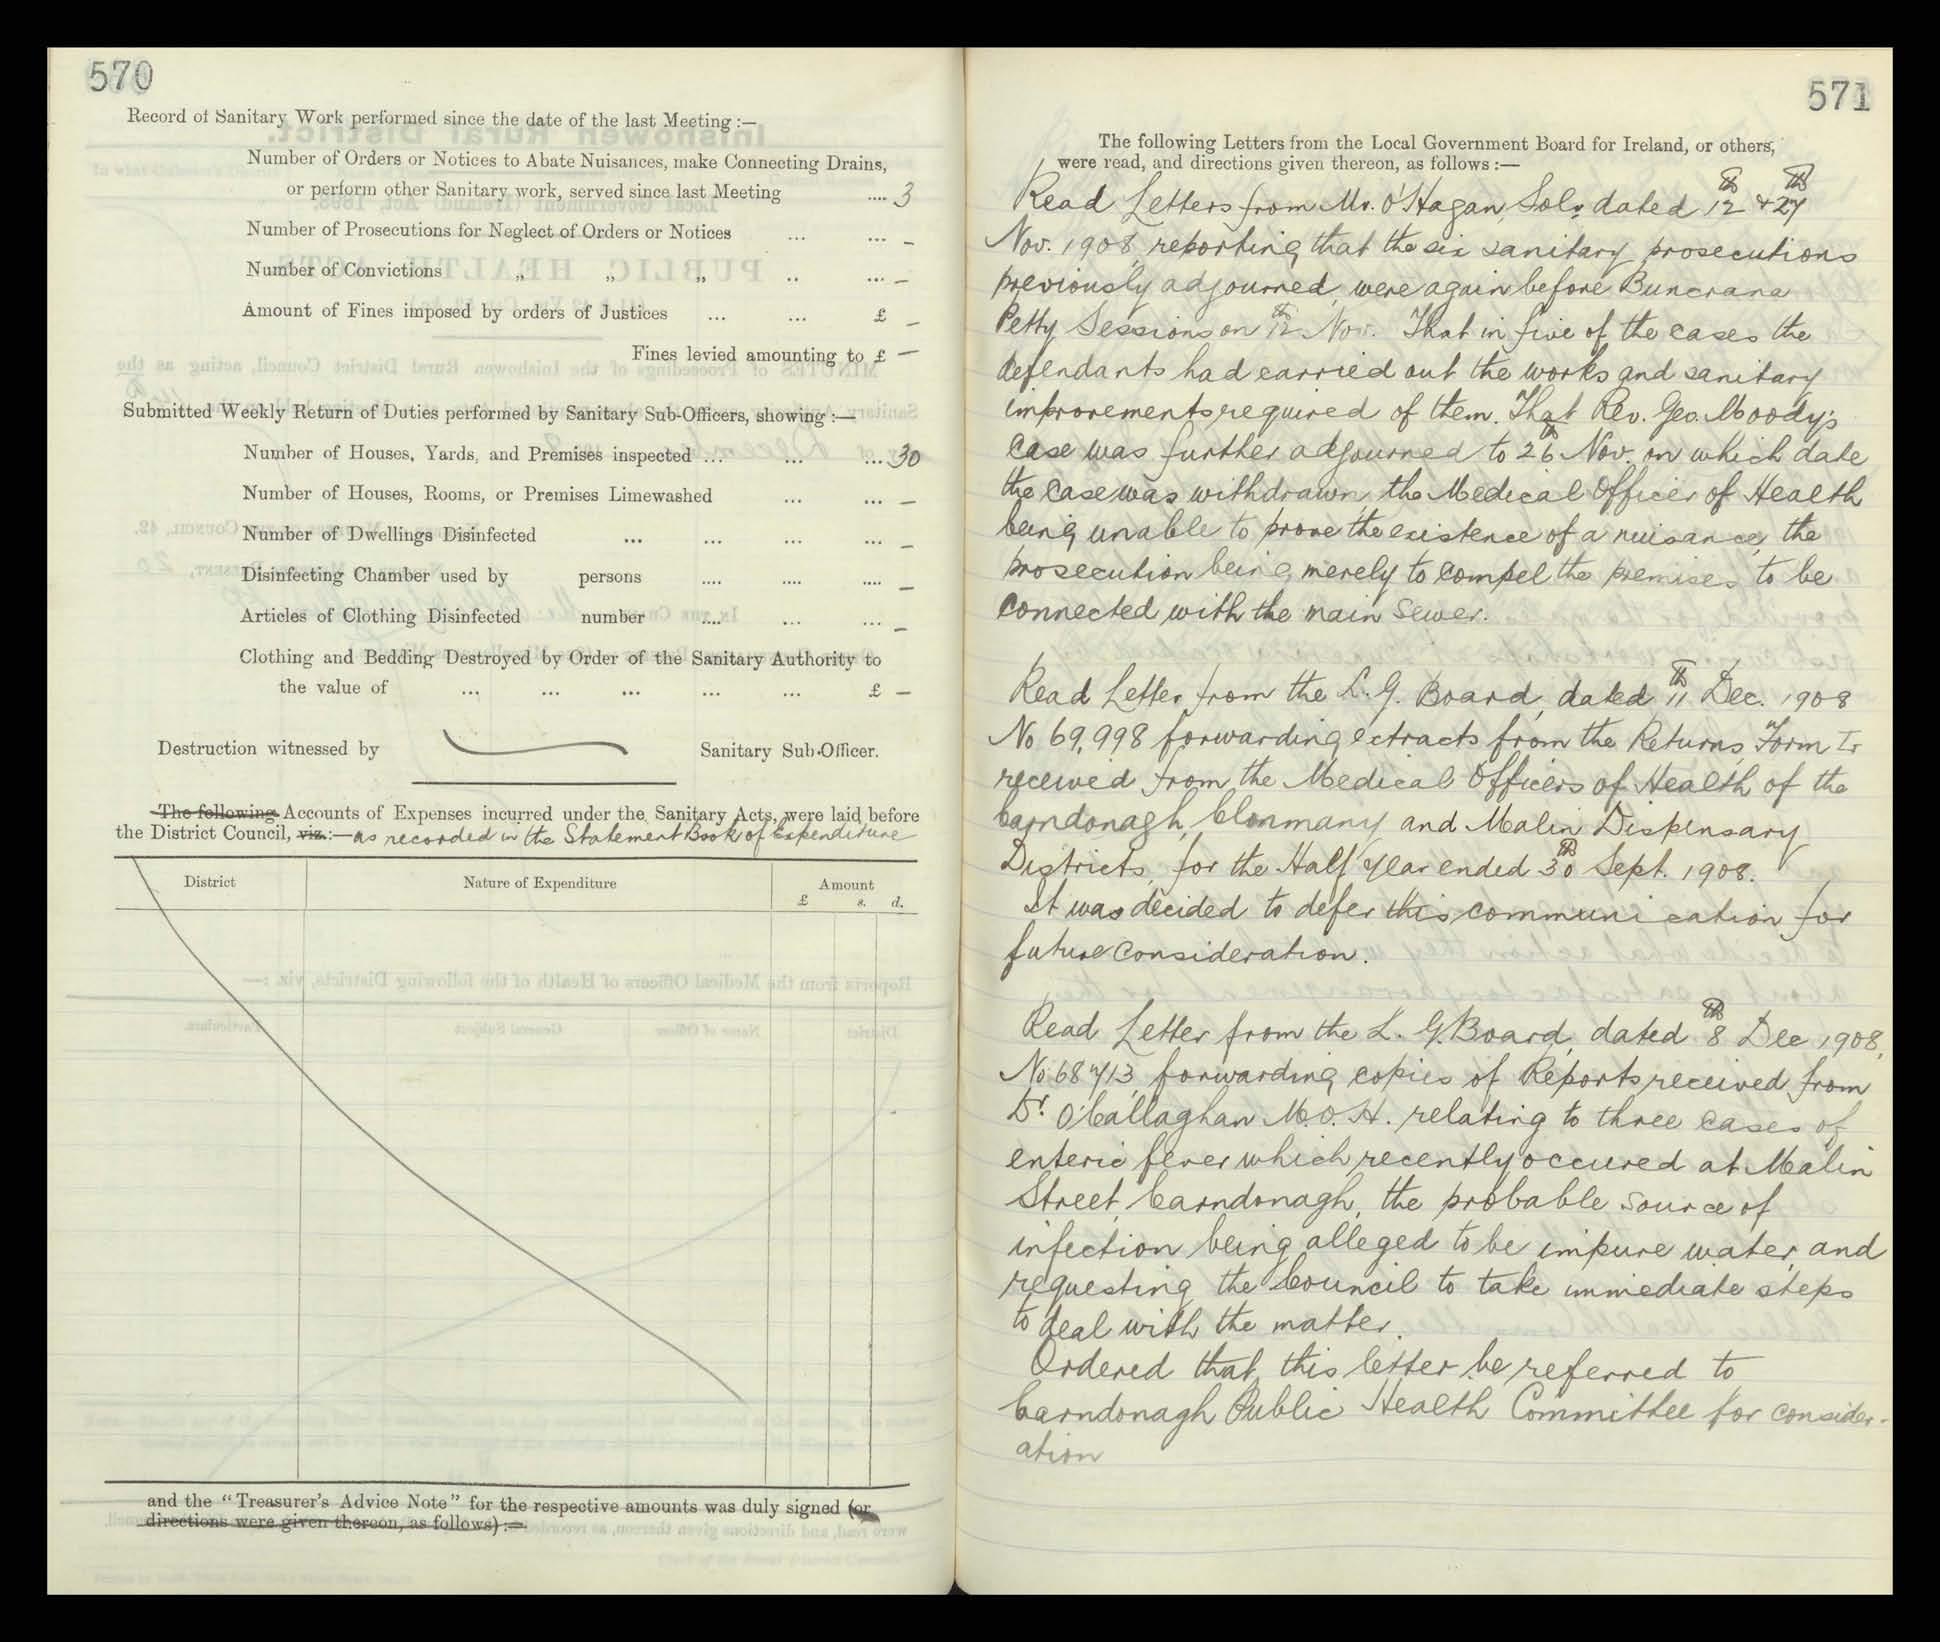 570
Record of Sanitary Work performed since the date of the last Meeting :—
Number of Orders or Notices to Abate Nuisances, make Connecting Drains,
or perform other Sanitary work, served since last Meeting .... 3
Number of Prosecutions for Neglect of Orders or Notices ... ... –
Number of Convictions „ „ „ .. ... –
Amount of Fines imposed by orders of Justices ... ... £ –
Fines levied amounting to £ –
Submitted Weekly Return of Duties performed by Sanitary Sub-Officers, showing :—
Number of Houses, Yards, and Premises inspected ... ... ... 30
Number of Houses, Rooms, or Premises Limewashed ... ... –
Number of Dwellings Disinfected ... ... ... ... –
Disinfecting Chamber used by persons .... .... .... –
Articles of Clothing Disinfected number .... ... ... –
Clothing and Bedding Destroyed by Order of the Sanitary Authority to
the value of ... ... ... ... ... £ –
Destruction witnessed by Sanitary Sub-Officer.
The following Accounts of Expenses incurred under the Sanitary Acts, were laid before
the District Council, viz.:— as recorded in the Statement Book of Expenditure
District Nature of Expenditure Amount
£ s. d.
and the "Treasurer's Advice Note" for the respective amounts was duly signed (or
directions were given thereon, as follows) :—
571
The following Letters from the Local Government Board for Ireland, or others,
were read, and directions given thereon, as follows :—
Read Letters from Mr. O'Hagan, Solr, dated 12th & 27th
Nov. 1908, reporting that the six sanitary prosecutions
previously adjourned, were again before Buncrana
Petty Sessions on 12th Nov. That in five of the cases the
defendants had carried out the works and sanitary
improvements required of them. That Rev. Geo. Moody's
Case was further adjourned to 26th Nov. on which date
the case was withdrawn, the Medical Officer of Health
being unable to prove the existence of a nuisance, the
prosecution being merely to compel the premises to be
connected with the main sewer.
Read Letter from the L. G. Board, dated 11th Dec. 1908
No 69,998 forwarding extracts from the Returns, Form
received from the Medical Officers of Health of the
Carndonagh, Clonmany and Malin Dispensary
Districts, for the Half Year ended 30th Sept. 1908.
It was decided to defer this communication for
future consideration.
Read Letter from the L. G. Board, dated 8th Dec 1908,
No 68713, forwarding copies of Reports received from
Dr. O'Callaghan M.O.H. relating to three cases of
enteric fever which recently occured at Malin
Street, Carndonagh, the probable source of
infection being alleged to be impure water, and
requesting the Council to take immediate steps
to deal with the matter.
Ordered that this letter be referred to
Carndonagh Public Health Committee for consider-
ation